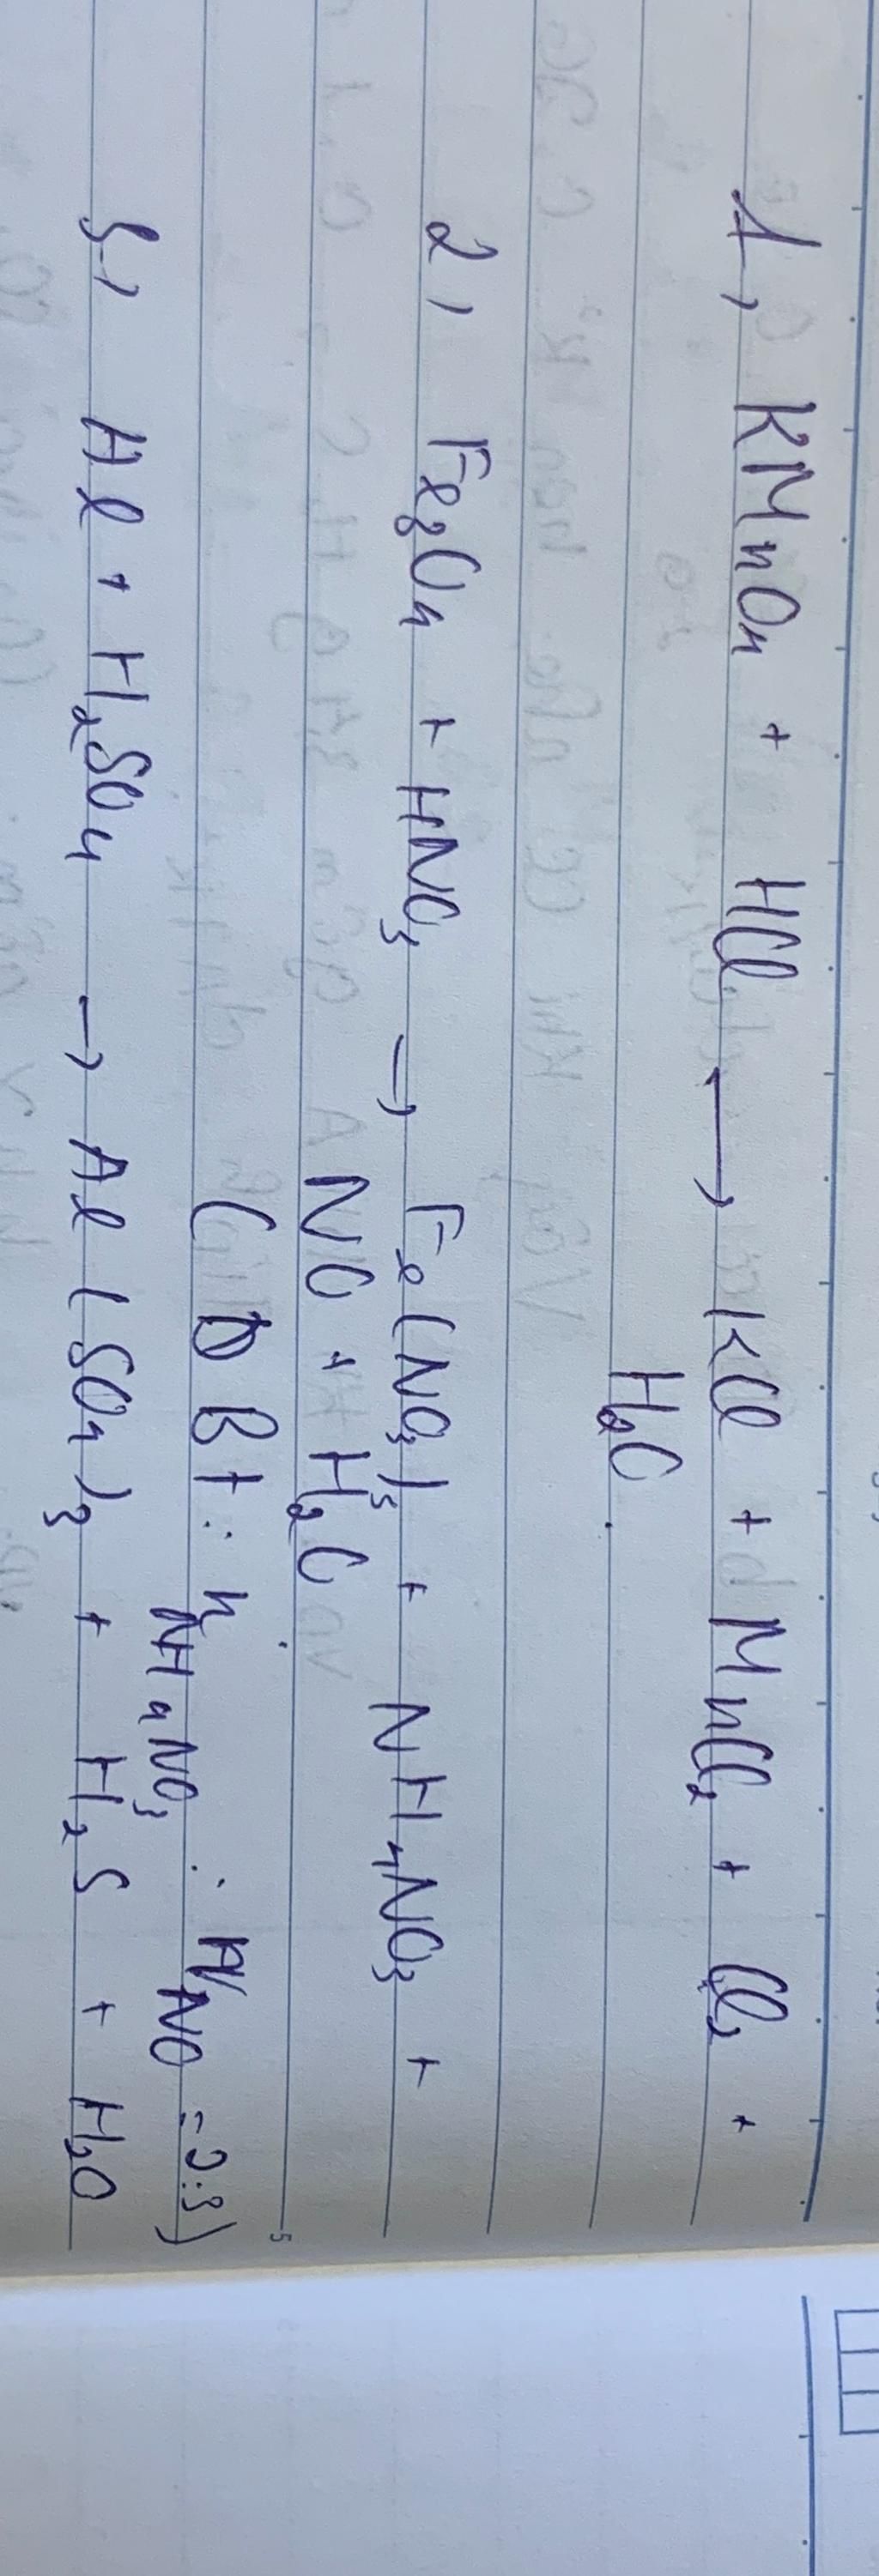 1, KMnO4 + HCl → KCl + MnCl2 + Cl2 +
H2O.
2, Fe3O4 + HNO3 → Fe(NO3)3 + NH4NO3 +
NO + H2O.
(D Bt: n NH4NO3 : n NO = 2:3)
3, Al + H2SO4 → Al (SO4)3 + H2S + H2O